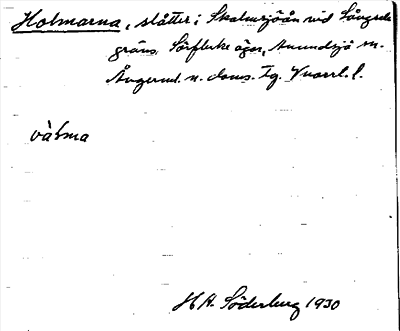 Holmarna, slåtter i Skalmsjöån vid Långsele
gräns. Sörflärke äger, Anundsjö sn.
Ångerml. n. doms. Tg. Vnorrl. l.
vàLma
H A. Söderberg 1930